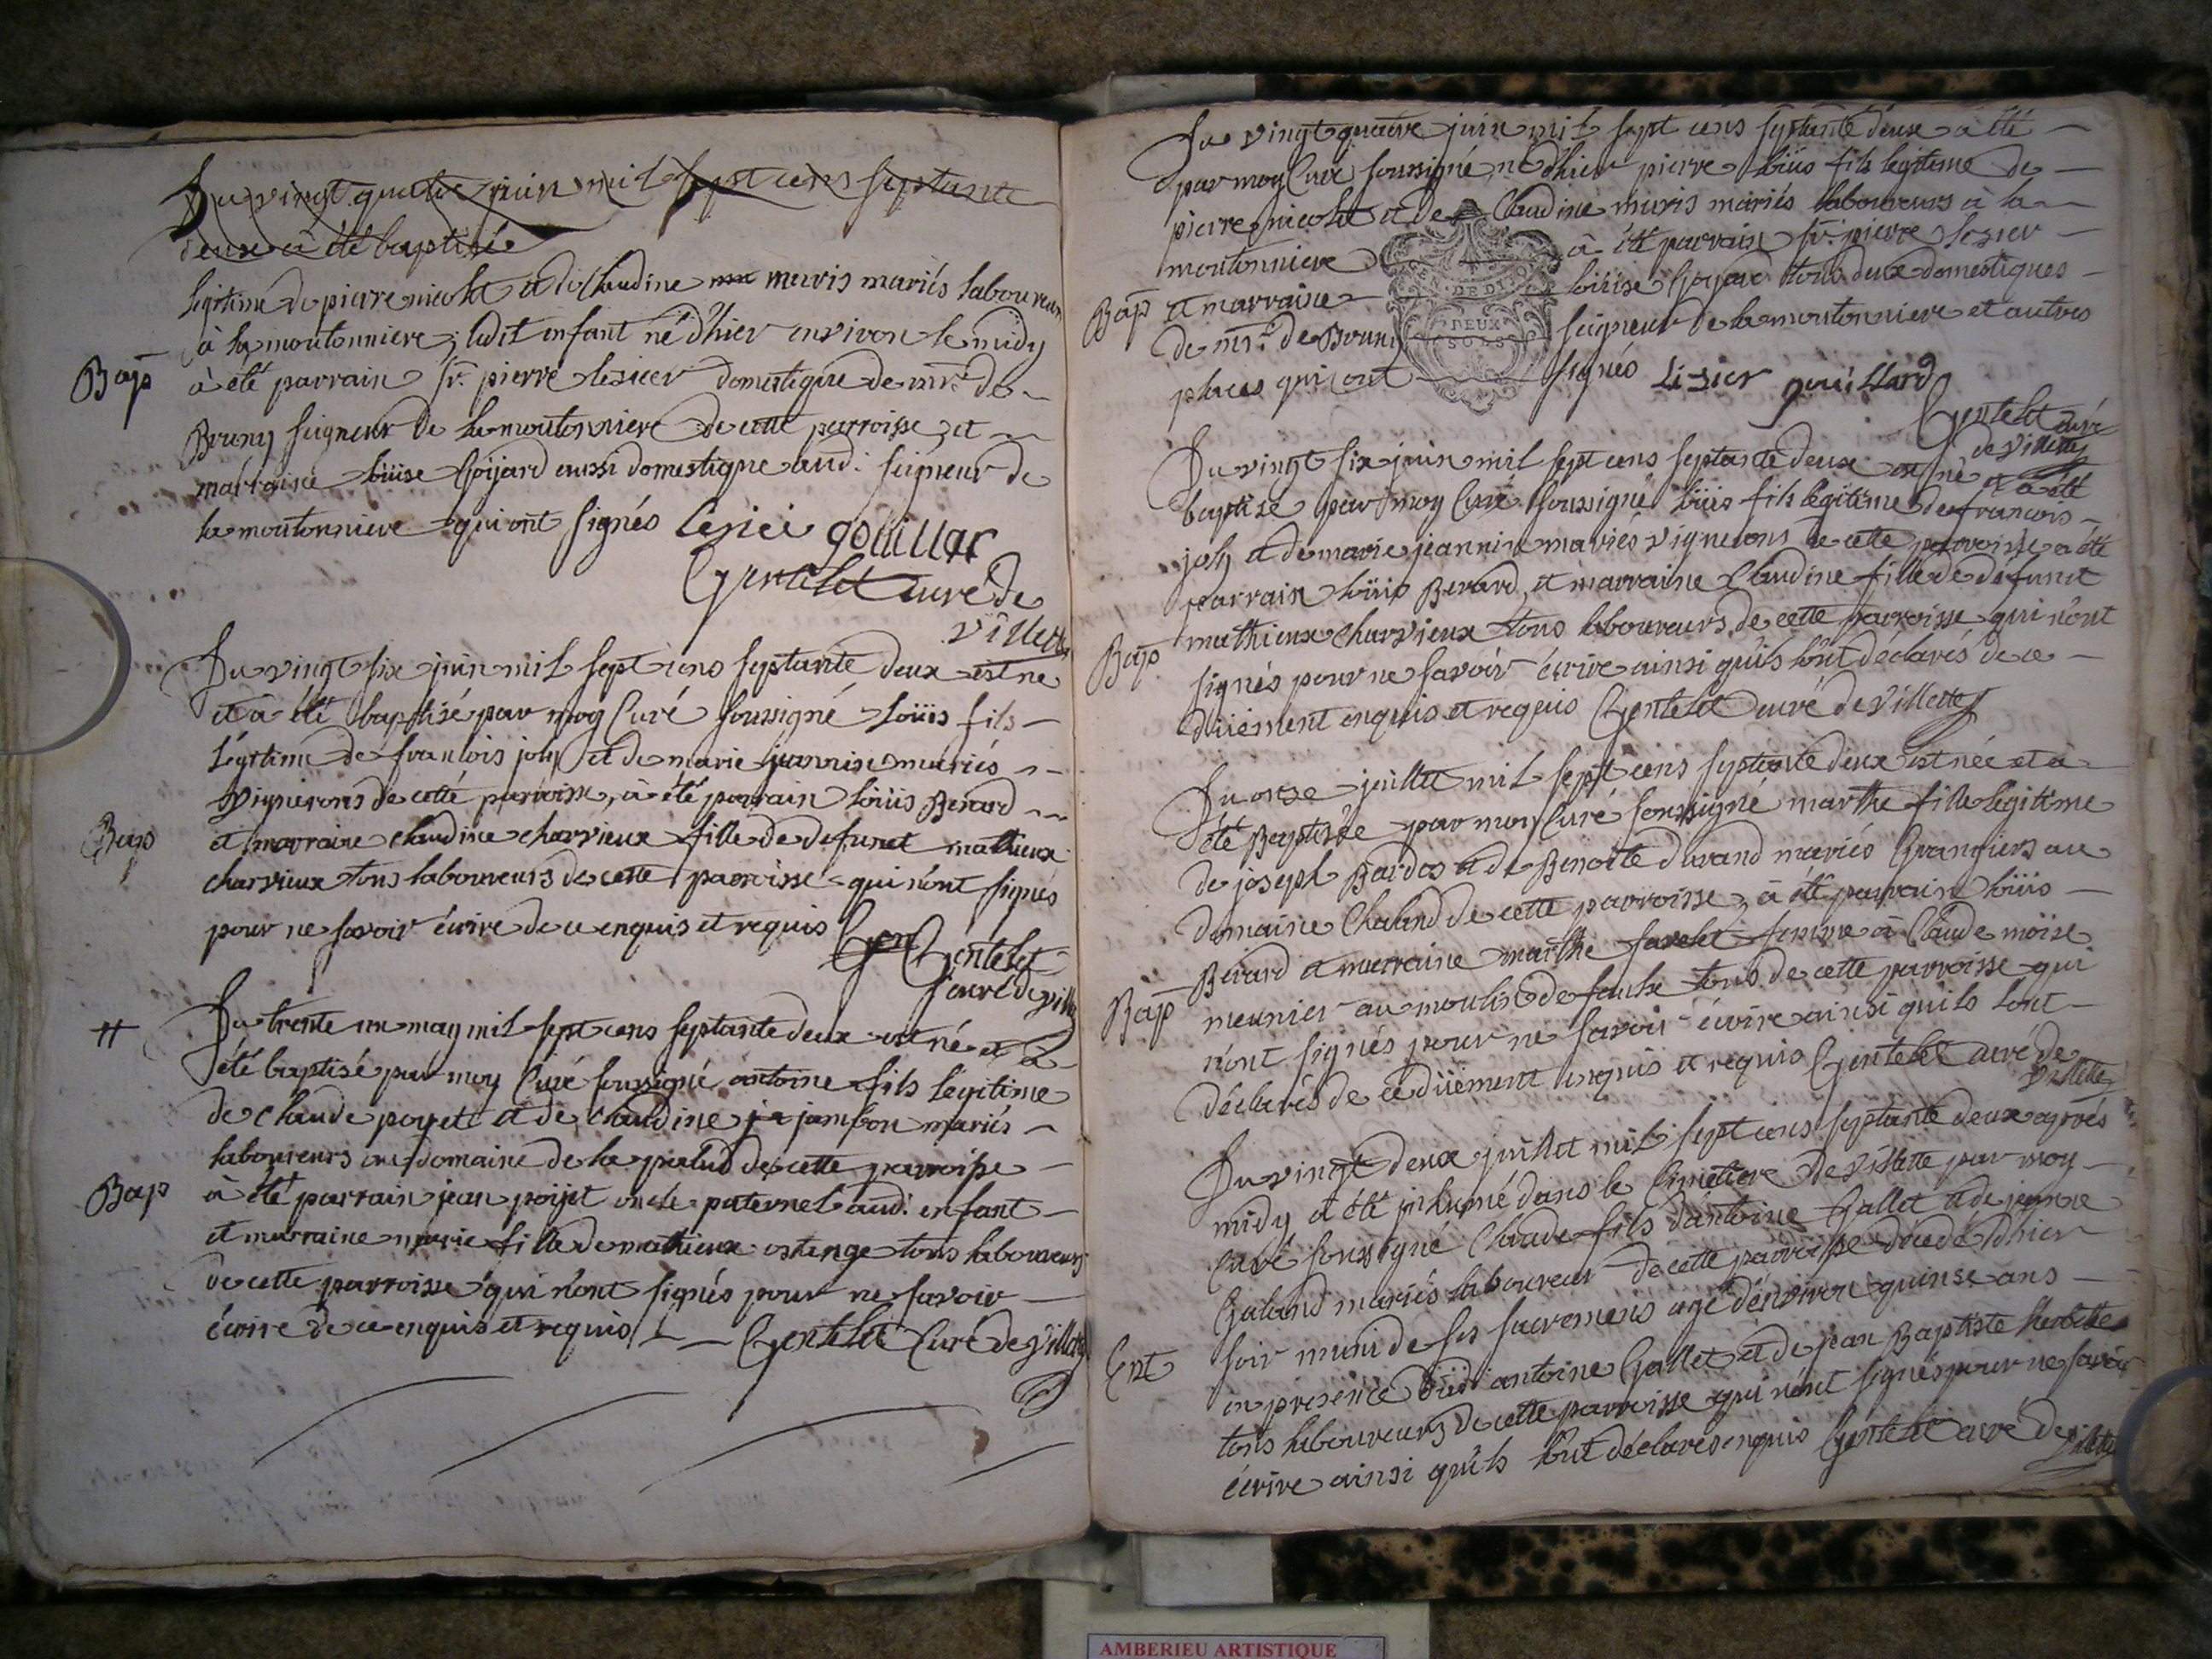 Du vingt quatre juin mil sept cens septante
deux à été baptisée
legitime de pierre nicolet et de Claudine muris mariés laboureurs
à la moutonniere, ledit enfant né d'hier environ le midy
Bap à été parrain Sr. pierre lesier domestique de mr. de
Bruny seigneur de la moutonniere de cette parroisse, et
marraine loüise Goijard aussi domestique aud. seigneur de
la moutonniere qui ont signés Lesier gouillar
Gentelet curé de
Villette
Du vingt six juin mil sept cens septante deux est ne
et à été baptisé par moy Curé soussigné Loüis fils
Légitime de francois joly et de marie jeannin mariés
Vignerons de cette parroisse, à été parrain loüis Berard
Bap et marraine claudine charvieux fille de defunct mathieux
charvieux tous laboureurs de cette parroisse qui n'ont signés
pour ne savoir écrire de ce enquis et requis
Gen Gentelet
curé de Villette
# Du trente un may mil sept cens septante deux est né et à
été baptisé par moy Curé soussigné antoine fils Légitime
de Claude poyet et de Claudine jambon mariés
laboureurs au domaine de la palud de cette parroisse
Bap à été parrain jean poijet oncle paternel aud. enfant
et marraine marie fille de mathieux ostange tous laboureurs
de cette parroisse qui n'ont signés pour ne savoir
écrire de ce enquis et requis Gentelet Curé de Villette
Du vingt quatre juin mil sept cens septante deux à été
par moy Curé soussigné né d'hier pierre loüis fils legitime de
pierre nicolet et de Claudine muris mariés laboureurs à la
moutonniere à été parrain Sr. pierre lesier
Bap et marraine loüise Gojard tous deux domestiques
de mr. de Bruny seigneur de la moutonniere et autres
places qui ont signés Lisier gouillard
DE DI
DEUX
SOLS
Gentelet curé
de Villette
Du vingt six juin mil sept cens septante deux est né et à été
baptisé par moy Curé soussigné loüis fils légitime de francois
joly et de marie jeannin mariés vignerons de cette parroisse a été
parrain loüis Berard, et marraine Claudine fille de défunct
Bap mathieux charvieux tous laboureurs de cette parroisse qui n'ont
signés pour ne savoir écrire ainsi qu'ils l'ont déclarés de ce
düement enquis et requis Gentelet curé de Villette
Du onse juillet mil sept cens septante deux est née et a
été Baptisée par moy Curé soussigné marthe fille legitime
de joseph Bardos et de Benoite durand mariés Grangiers au
domaine Chaland de cette parroisse, à été parrain loüis
Berard et marraine marthe favelet femme à Claude moïse
Bap meunier au moulin de tous de cette parroisse qui
n'ont signés pour ne savoir écrire ainsi quils lont
déclarés de ce düement enquis et requis Gentelet curé de
Villette
Du vingt deux juillet mil sept cens septante deux après
midy a été inhumé dans le Cimetiere de Villette par moy
Curé soussigné Claude fils d'antoine Gallet et de jeanne
Galand mariés laboureur de cette parroisse décedé d'hier
soir muni de ses sacremens agé d'environ quinse ans
Ent en presence dud. antoine Gallet et de jean Baptiste herbette
tous laboureurs de cette parroisse qui n'ont signés pour ne savoir
écrire ainsi qu'ils l'ont déclarés enquis Gentelet curé de
Villette
AMBERIEU ARTISTIQUE